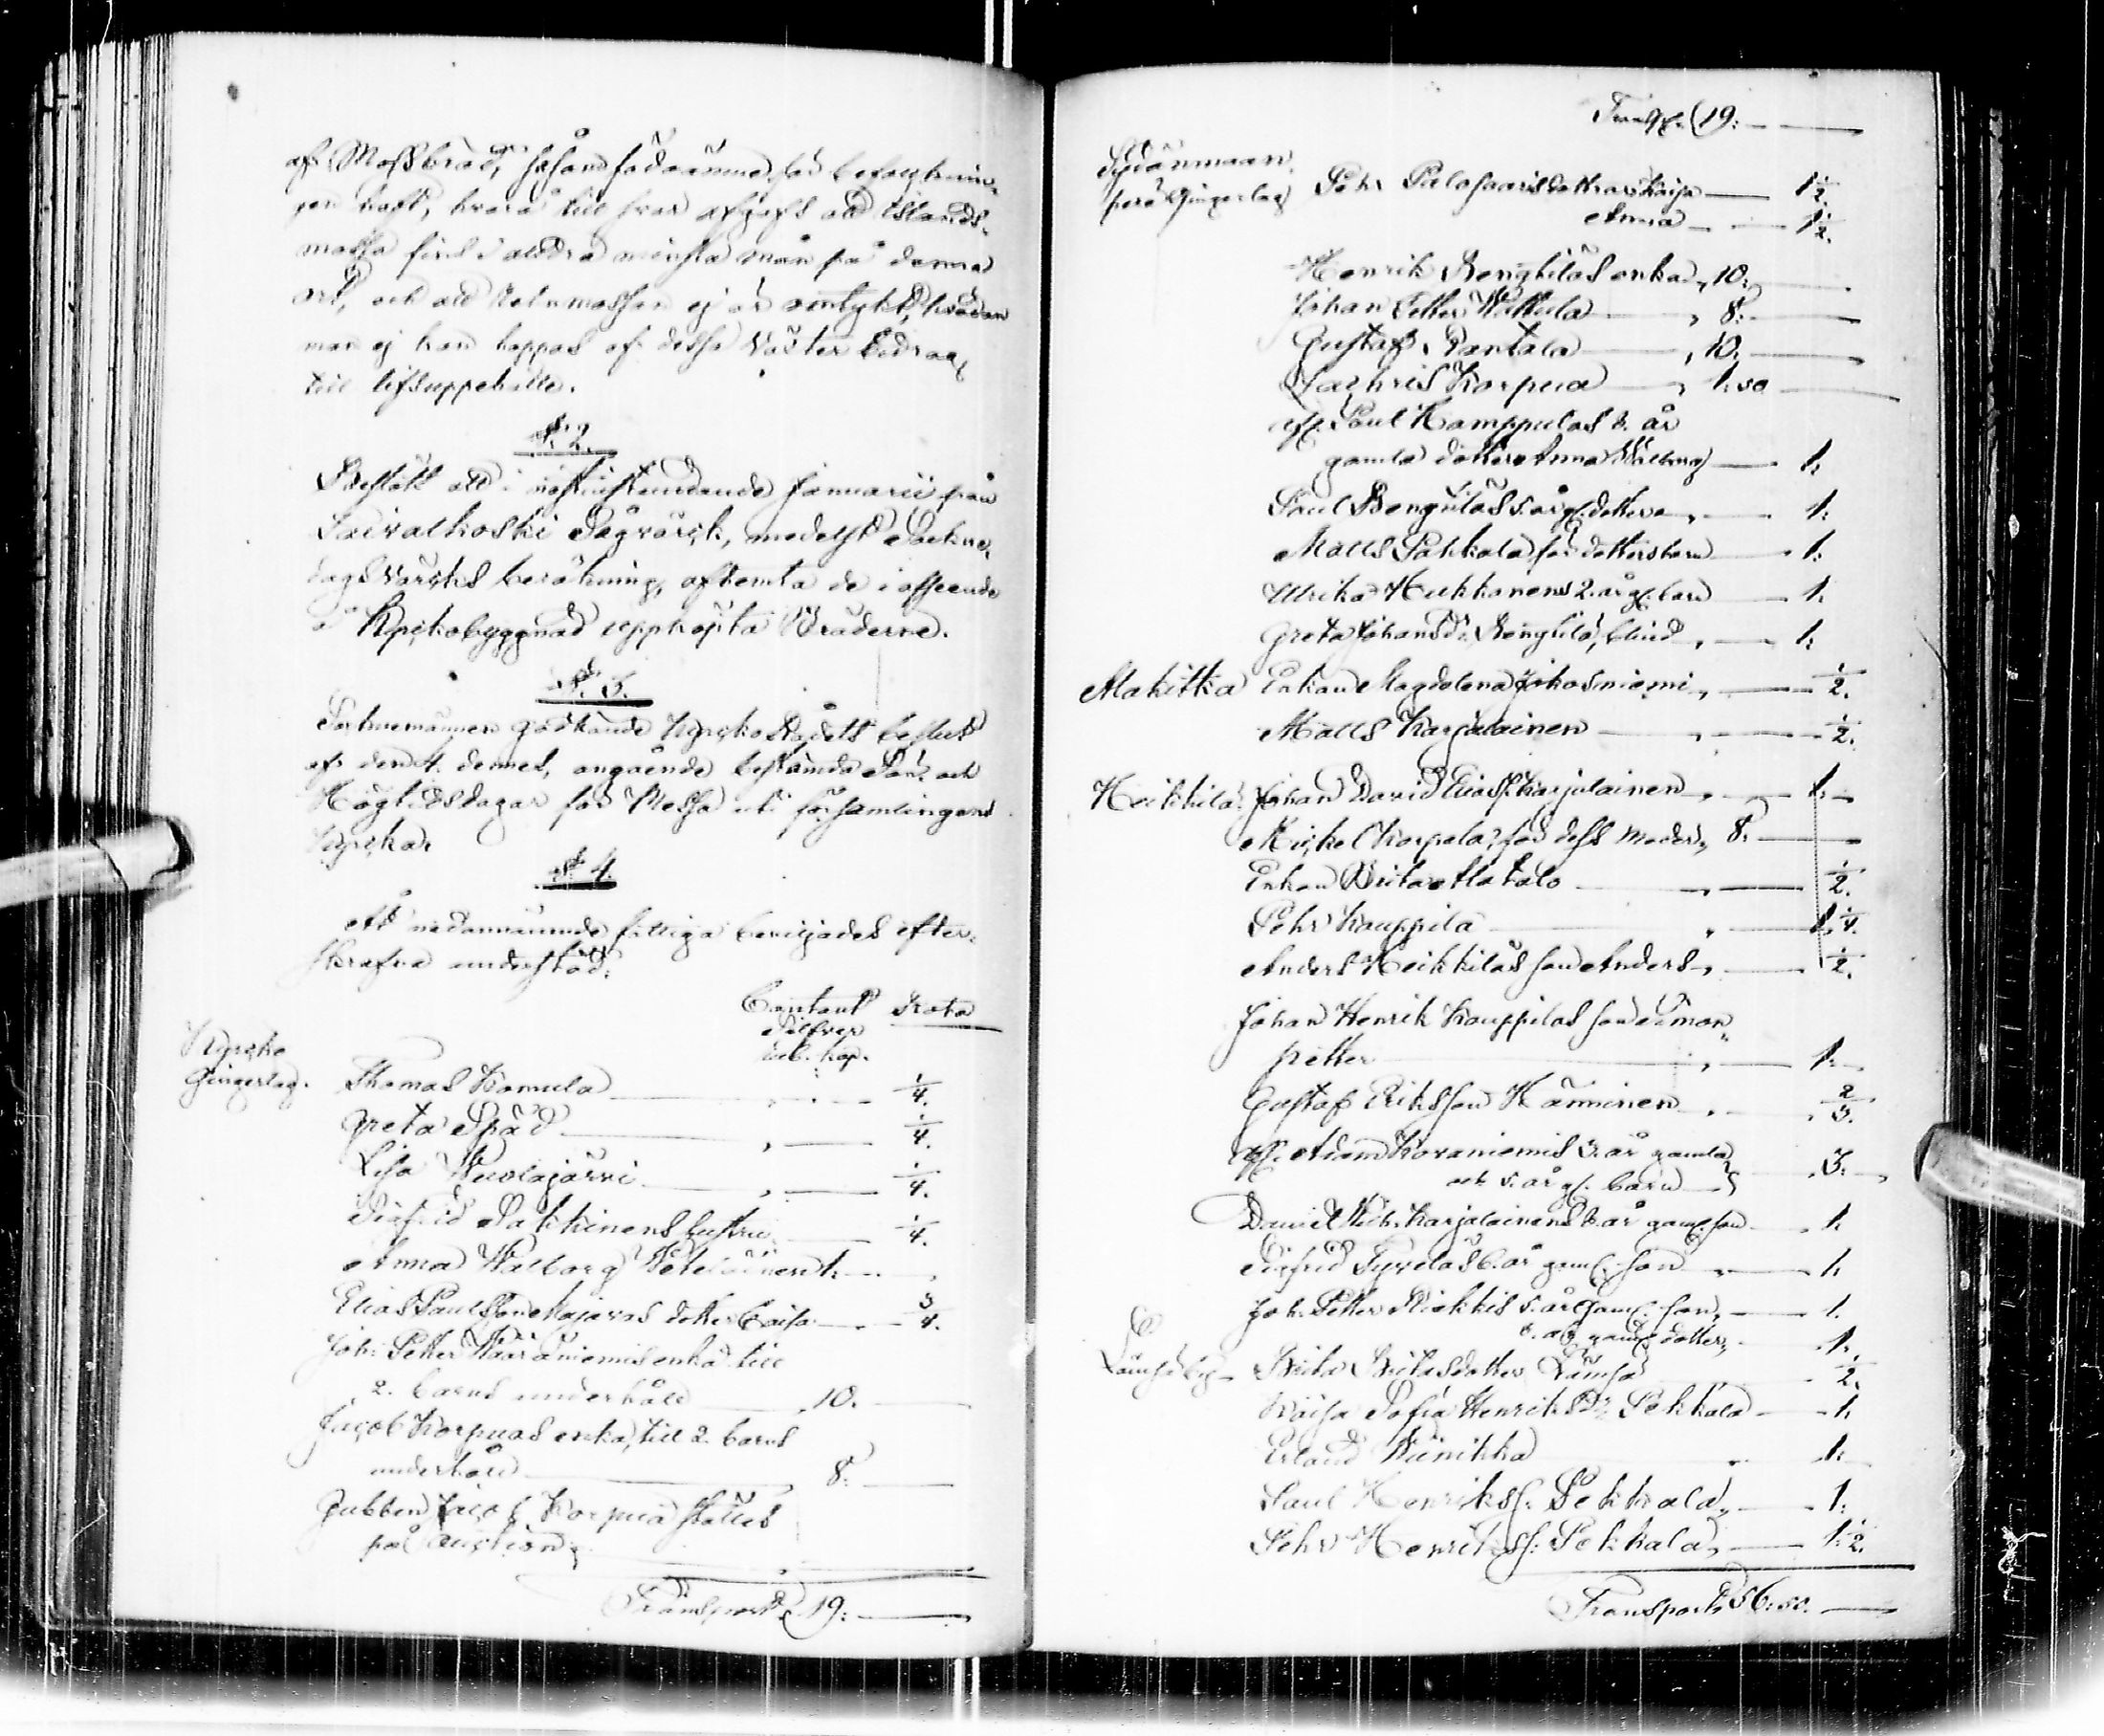 af Mossbröd, såsom födoämne för befolknin-
gen haft, hvarå till svar afgafs att Islands-
mossa fins i aldra minsta mån på denna
ort, och att Renmossan ej är omtykt, hvadan
man ej kan hoppas af dessa växter bidrag
till lifsuppehälle.
§. 2.
att i nästinstundande Januarii från
Taivalkoski Sågvärck, medelst Sockne-
dagsvärcks beräkning, afhemta de i afseende
å Kyrkobyggnad uppköpta Bräderne.
§. 3.
Sockнemännen godkände Kyrko Rådets beslut
af den 4. dennes, angående bestämda Sön- och
Högtidsdagar för Messa uti församlingens
kyrka.
§. 4.
Åt nedannämnde fattiga beviljades efter-
skrefne understöd:
Contant Rota
Silfver
Rub. kop.
Kyrko
Gingerlag. Thomas Komula 1/4.
Greta Späd 1/4.
Lisa Kuolajärvi 1/4.
Sigfrid Pakkinens hustru 1/4.
Anna Walborg 1.
Elias Paulsson Majavas dotter Caisa 3/4.
Joh: Petter Määräniemis enka till
2. barns underhåld 10.
Jacob Korpuas enka, till 2. barns
underhåld 8:
Gubben Jacob Korpua ställes
på auction
Transport 19:
Transp. 19:
Sydänmaan
perä Gingerlag Pehr Palosaaris dottrar Kaisa 1 1/2.
Anna 1 1/2.
Henrik Rengitläs enka 10:
Johan Petter Mattila 8:
Gustaf Rantala 10.
Zachris Korpua 1:50
afl. Paul Kamppulas 3. år
gamla dotter Anna Walborg 1:
Paul 5. år g. dotter 1:
Matts Pahkala för dottersbarn 1:
Ulrika Heikkonens 2. år g. barn 1:
Greta Johansd:r blind 1:
Mahitka Enkan Magdalena Jokosniemi 1/2.
Matts Karjalainen 1/2.
Heikkilä. Johan David Eliass. Karjalainen 1:
Michel Korpela, för dess moder 8.
Enkan Brita Matalo 1/2.
Pehr Kauppila 1. 1/4.
Anders Heikkiläs son Anders 1/2.
Johan Henrik Kauppilas son Simon
Petter 1:
Gustaf Eriksson Hänninen 2/3.
afl. Adam Koraniemis 3. år gamla
och 5. år g. barn 3:
Daniel Mich. Karjalainens 3. år gaml. son 1:
Sigfrid Tyvelas 6. år gaml. son 1:
Joh. Petter Riekkis 5. år gaml. son 1.
6. år gaml. dotter 1.
Lämsä by Brita Britasdotter Lämsä 1/2.
Kaisa Sofia Henriksd:r Pekkala 1:
Erland Winikka 1:
Paul Henrikss: Pekkala 1:
Pehr Henrikss: Pekkala 1 1/2.
Transport 56:50.